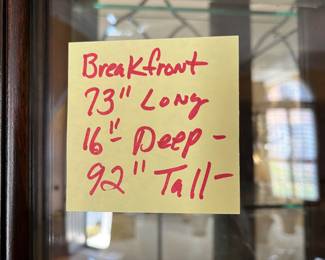 Breakfront
73" Long
16" Deep -
92" Tall -